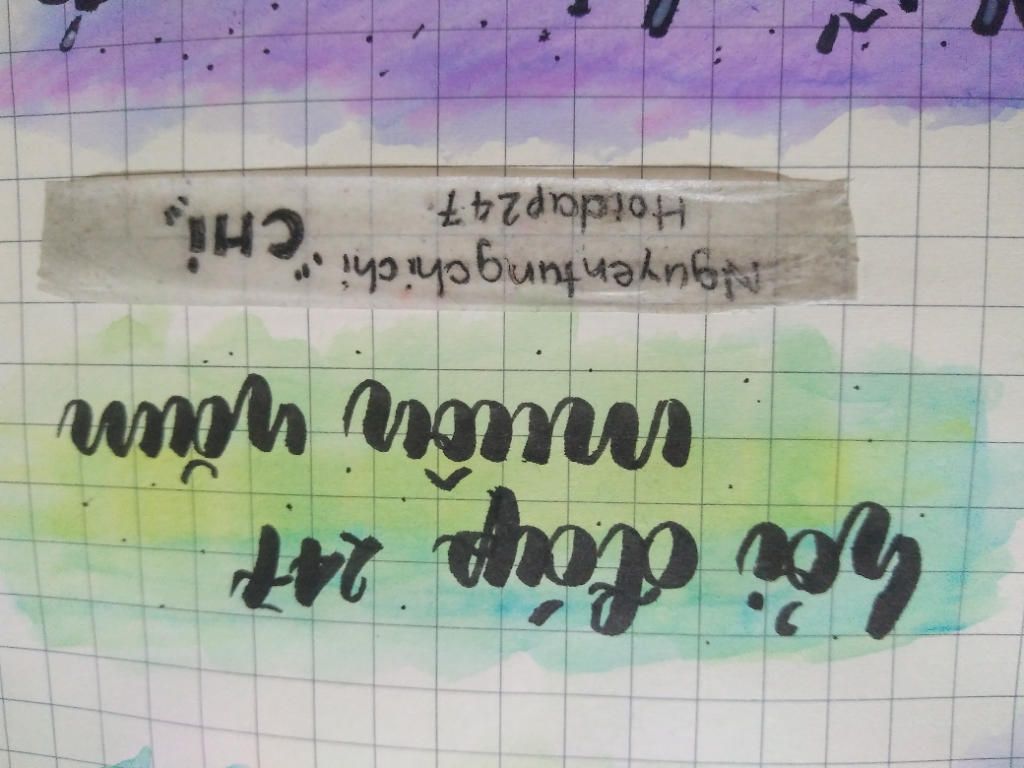 hỏi đáp 247
muôn năm
Nguyentungchichi "CHi"
Hoidap247